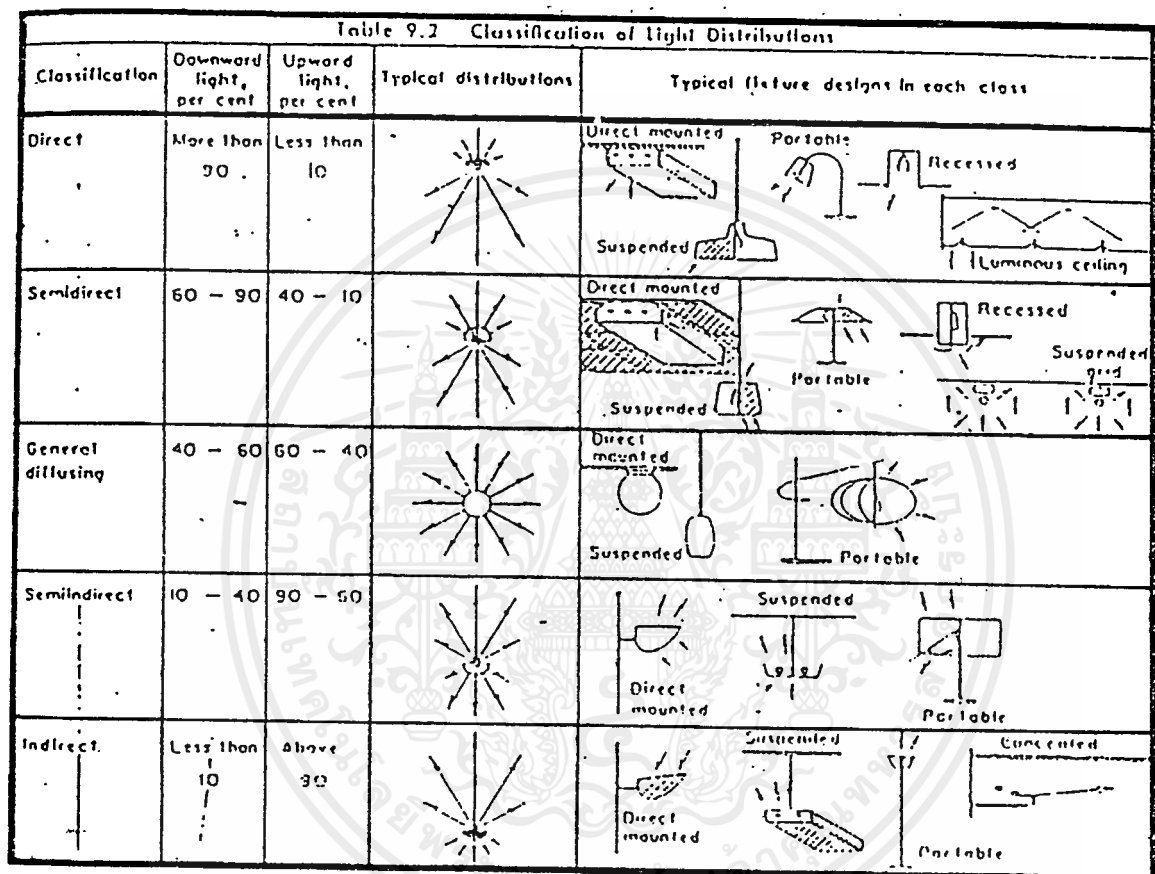 Table 9.2 Classification of Light Distributions
Classification
Downward light, per cent
Upward light, per cent
Typical distributions
Typical fixture designs in each class
Direct
More than 90
Less than 10
Direct mounted
Portable
Recessed
Suspended
Luminous ceiling
Semidirect
60 – 90
40 – 10
Direct mounted
Portable
Recessed
Suspended
Suspended grid
General diffusing
40 – 60
60 – 40
Direct mounted
Suspended
Portable
Semiindirect
10 – 40
90 – 60
Direct mounted
Suspended
Portable
Indirect
Less than 10
Above 90
Direct mounted
Suspended
Portable
Concealed